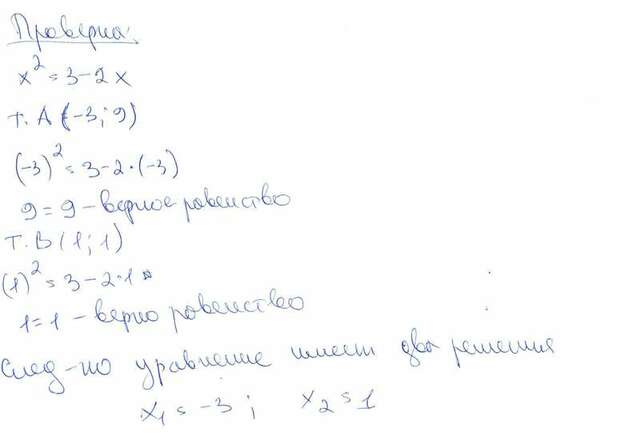 Проверка:
x² = 3 - 2x
т. А (-3; 9)
(-3)² = 3 - 2·(-3)
9 = 9 - верное равенство
т. В (1; 1)
(1)² = 3 - 2·1
1 = 1 - верно равенство
След-но уравнение имеет два решения
x₁ = -3; x₂ = 1